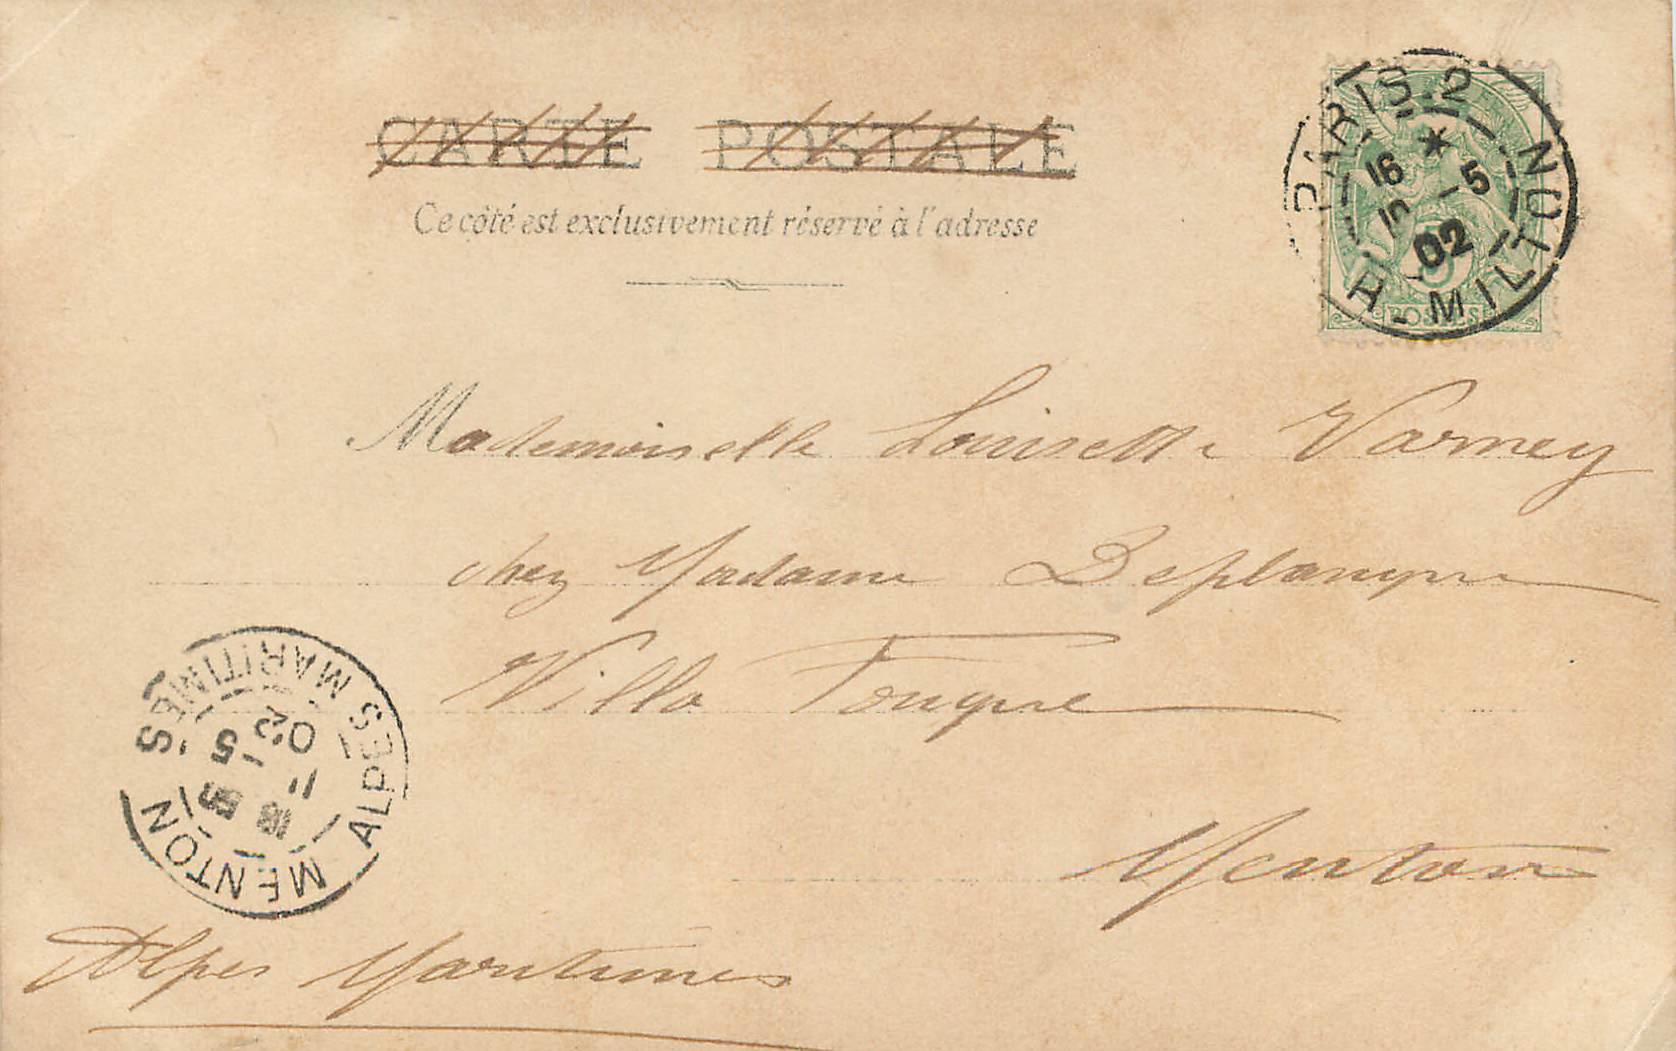 CARTE POSTALE
Ce côté est exclusivement réservé à l'adresse
PARIS.2
R. MILTON
16
10 -5
02
5
POSTES
Mademoiselle Louisette Varney
chez Madame Deplanque
Villa Fouque
Menton
Alpes Maritimes
MENTON
ALPES MARITIMES
11
-5
02